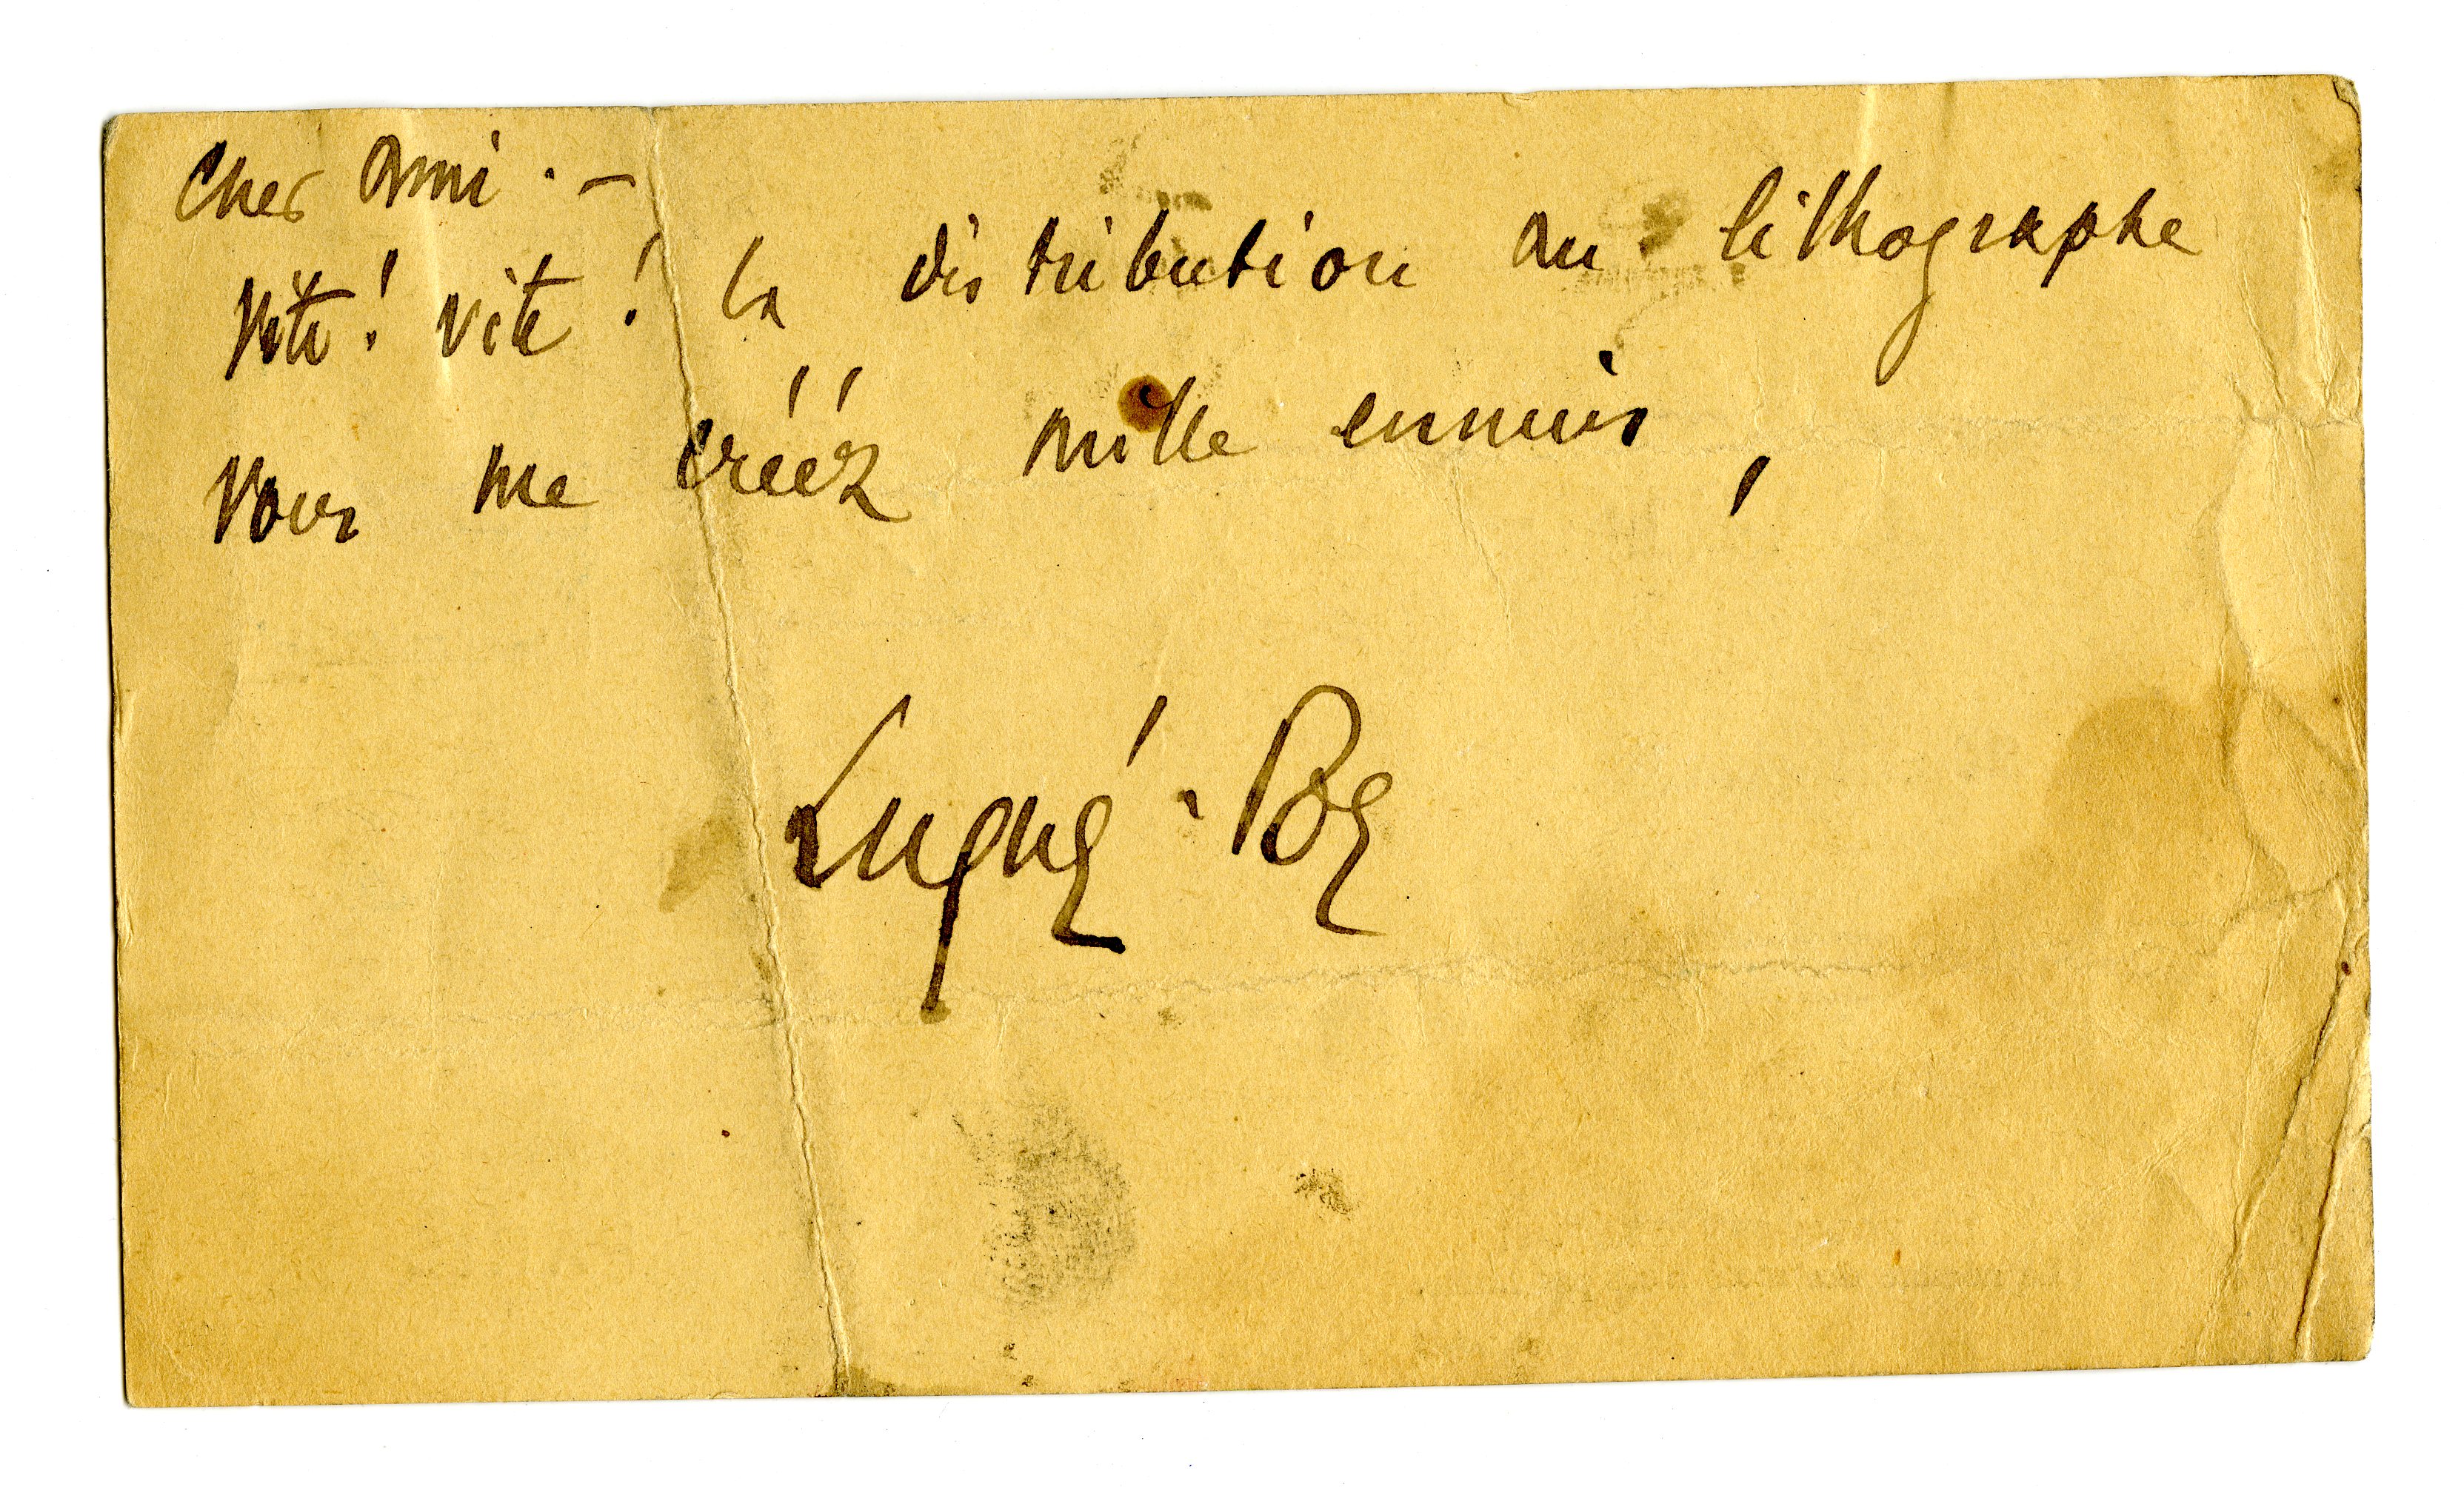 Cher Ami . —
Vite ! vite ! la distribution au lithographe
Vous me créez mille ennuis,
Lugné-Poe